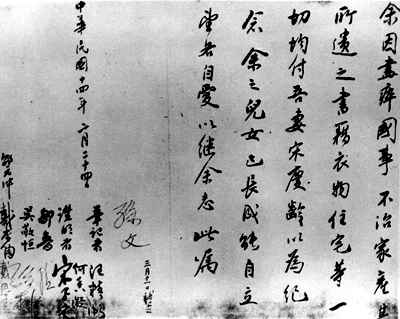 余因盡瘁國事不治家產其
所遺之書籍衣物住宅等一
切均付吾妻宋慶齡以為紀
念余之兒女已長成能自立
望各自愛以繼余志此属
孫文
三月十一日補簽
中華民國十四年二月二十四
筆記者 汪精衛
證明者 宋子文
何香凝
鄒魯
吳敬恆
邵元冲
戴恩賽